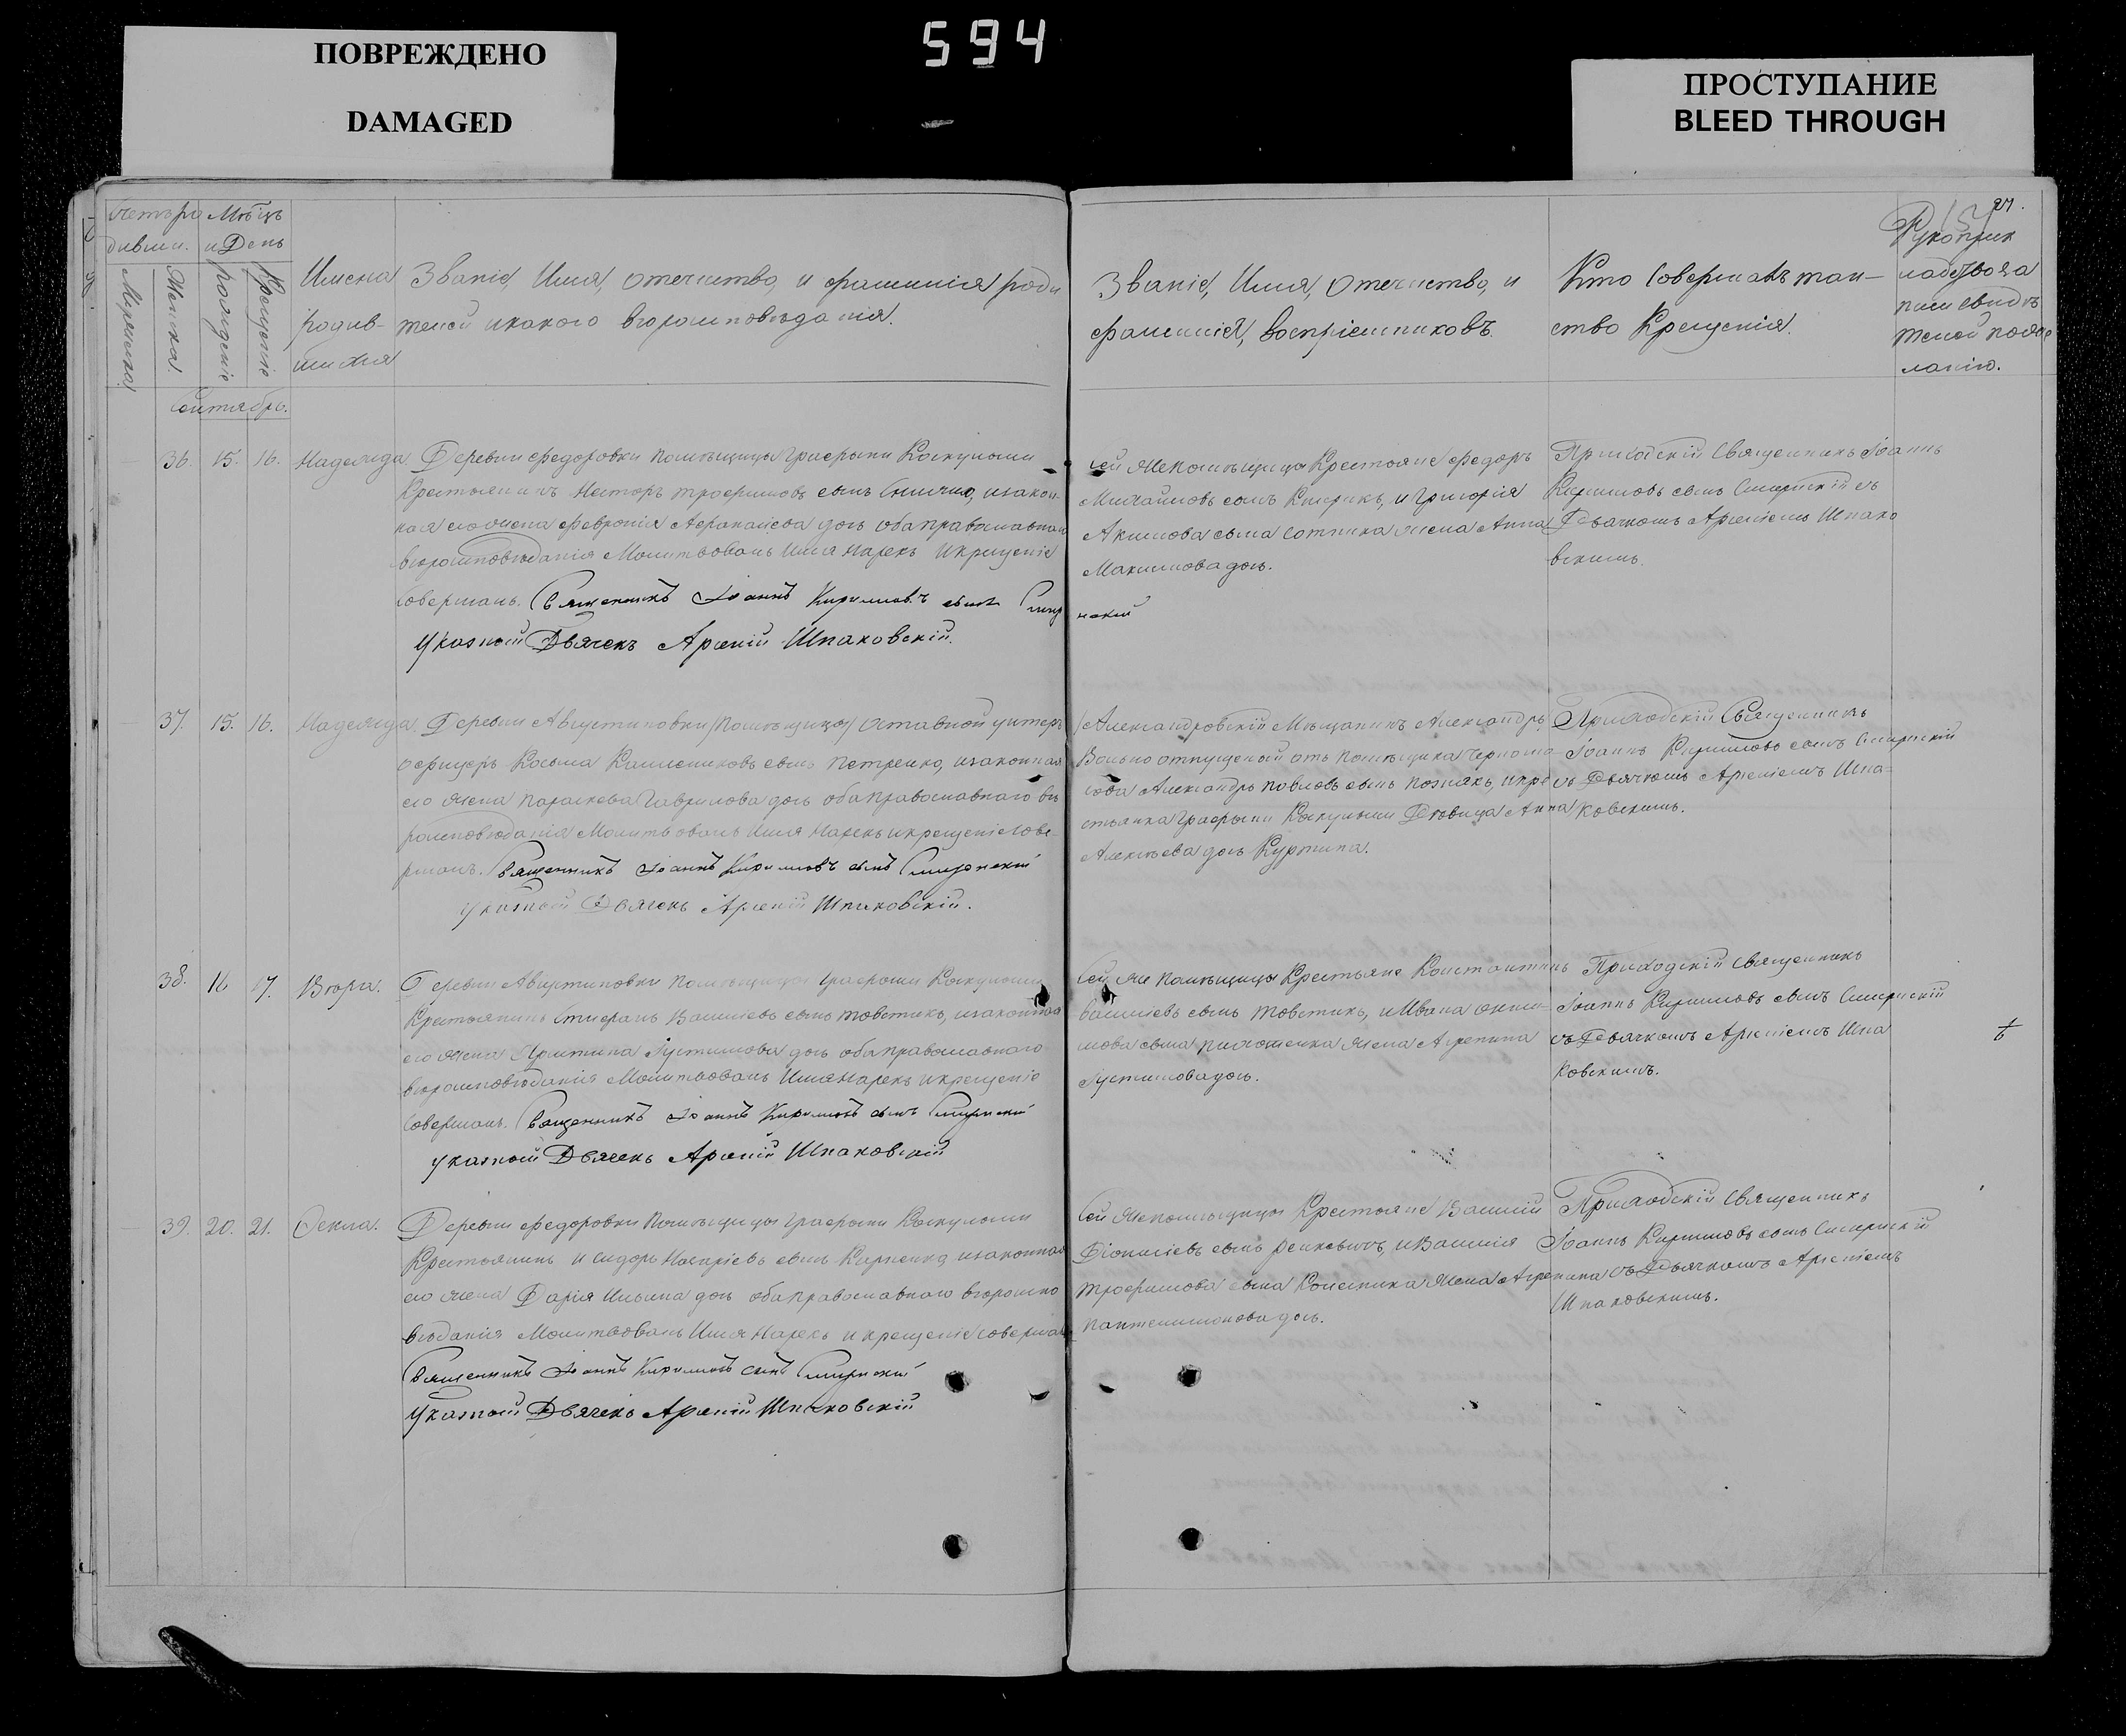 ПОВРЕЖДЕНО
DAMAGED
594
ПРОСТУПАНИЕ
BLEED THROUGH
27.
Счетъ ро
дивши.
Мѣцъ
и День
Мужеска
Женска.
рожденіе
Крещеніе
Имена
родив-
шихся
Званіе, Имя, отечество, и фамилія роди
телей и какого вѣроисповѣданія.
Званіе, Имя, Отечество, и
фамилія, воспріемниковъ.
Кто Совершалъ таи-
ство Крещенія.
Рукоприк
ладство за
писи свидѣ
телей по же
ланію.
Сентябрь.
36. 15. 16. Надежда
Деревни Федоровки помѣщицы Графини
Крестьянинъ Несторъ Трофимовъ сынъ изакон-
ная его жена Февронія Афанасіева дочь оба православнаго
вѣроисповѣданія Молитвовалъ Имя Нарекъ Икрещеніе
совершалъ. Священникъ Іоаннъ Кирилловъ сынъ
Указной Дьячекъ Арсеній Шпаковскій.
Сей же помѣщицы Крестьяне Федоръ
Михайловъ сынъ и Григорія
Акимова сына Сотника жена Анна
Максимова дочь.
Приходскій Священникъ Іоаннъ
Кирилловъ сынъ съ
Дьячкомъ Арсеніемъ Шпако
вскимъ.
37. 15. 16. Надежда.
Деревни Августиновки помѣщицы Отставной унтеръ
офицеръ Косьма сынъ Петренко, изаконная
его жена Параскева Гаврилова дочь оба православнаго вѣ
роисповѣданія Молитвовалъ Имя Нарекъ икрещеніе сове-
ршалъ. Священникъ Іоаннъ Кирилловъ сынъ
Указной Дьячекъ Арсеній Шпаковскій.
Александровскій Мѣщанинъ Александръ
Вольно отпущеной отъ помѣщика
Александръ Павловъ сынъ Познякъ, и кре
стьянка Графини Дѣвица Анна
Алексѣева дочь
Приходскій Священникъ
Іоаннъ Кирилловъ сынъ
съ Дьячкомъ Арсеніемъ Шпа-
ковскимъ.
38. 16 17. Вѣра.
Деревни Августиновки помѣщицы Графини
Крестьянинъ Стефанъ Василіевъ сынъ Товстикъ, изаконная
его жена Христина Іустинова дочь оба православнаго
вѣроисповѣданія Молитвовалъ Имя Нарекъ икрещеніе
Совершалъ. Священникъ Іоаннъ Кирилловъ сынъ
Указной Дьячекъ Арсеній Шпаковскій
Сей же помѣщицы Крестьяне Константинъ
Василіевъ сынъ Товстикъ, и Ивана
сына жена Агрепина
Іустинова дочь.
Приходскій Священникъ
Іоаннъ Кирилловъ сынъ
съ Дьячкомъ Арсеніемъ Шпа
ковскимъ.
39. 20. 21. Фекла.
Деревни Федоровки Помѣщицы Графини
Крестьянинъ Исидоръ сынъ изаконная
его жена Дарія Ильина дочь оба православнаго вѣроиспо
вѣданія Молитвовалъ Имя Нарекъ и крещеніе совершалъ
Священникъ Іоаннъ Кирилловъ сынъ
Указной Дьячекъ Арсеній Шпаковскій
Сей же помѣщицы Крестьяне Василій
Діонисіевъ сынъ и Василія
Трофимова сына Колесника жена Агрепина
Пантелимонова дочь.
Приходскій Священникъ
Іоаннъ Кирилловъ сынъ
съ Дьячкомъ Арсеніемъ
Шпаковскимъ.